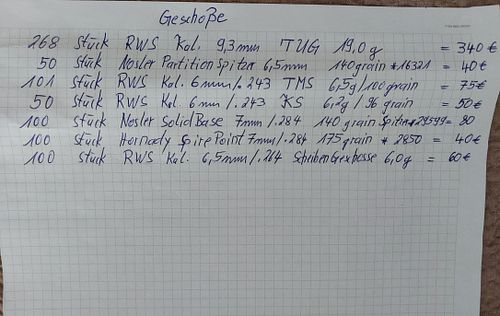 Geschoße
268 Stück RWS Kal. 9,3mm TUG 19,0g = 340€
50 Stück Nosler Partition Spitzer 6,5mm 140grain *16321 = 40€
101 Stück RWS Kal. 6mm/.243 TMS 6,5g/100grain = 75€
50 Stück RWS Kal. 6mm/.243 KS 6,2g/96grain = 50€
100 Stück Nosler Solid Base 7mm/.284 140grain Spitzer = 80
100 Stück Hornady Spire Point 7mm/.284 175grain *2850 = 40€
100 Stück RWS Kal. 6,5mm/.264 Scheiben 6,0g = 60€